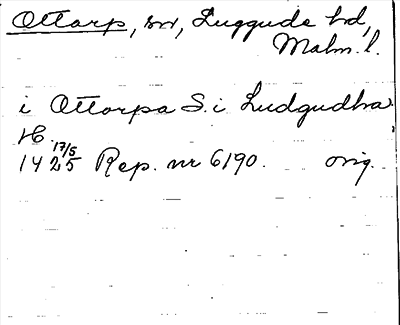 Ottarp, sn, Luggude hd,
Malm. l.
i Ottorpa S. i Ludgudhra
H.
1425 17/5 Rep. nr 6190. orig.